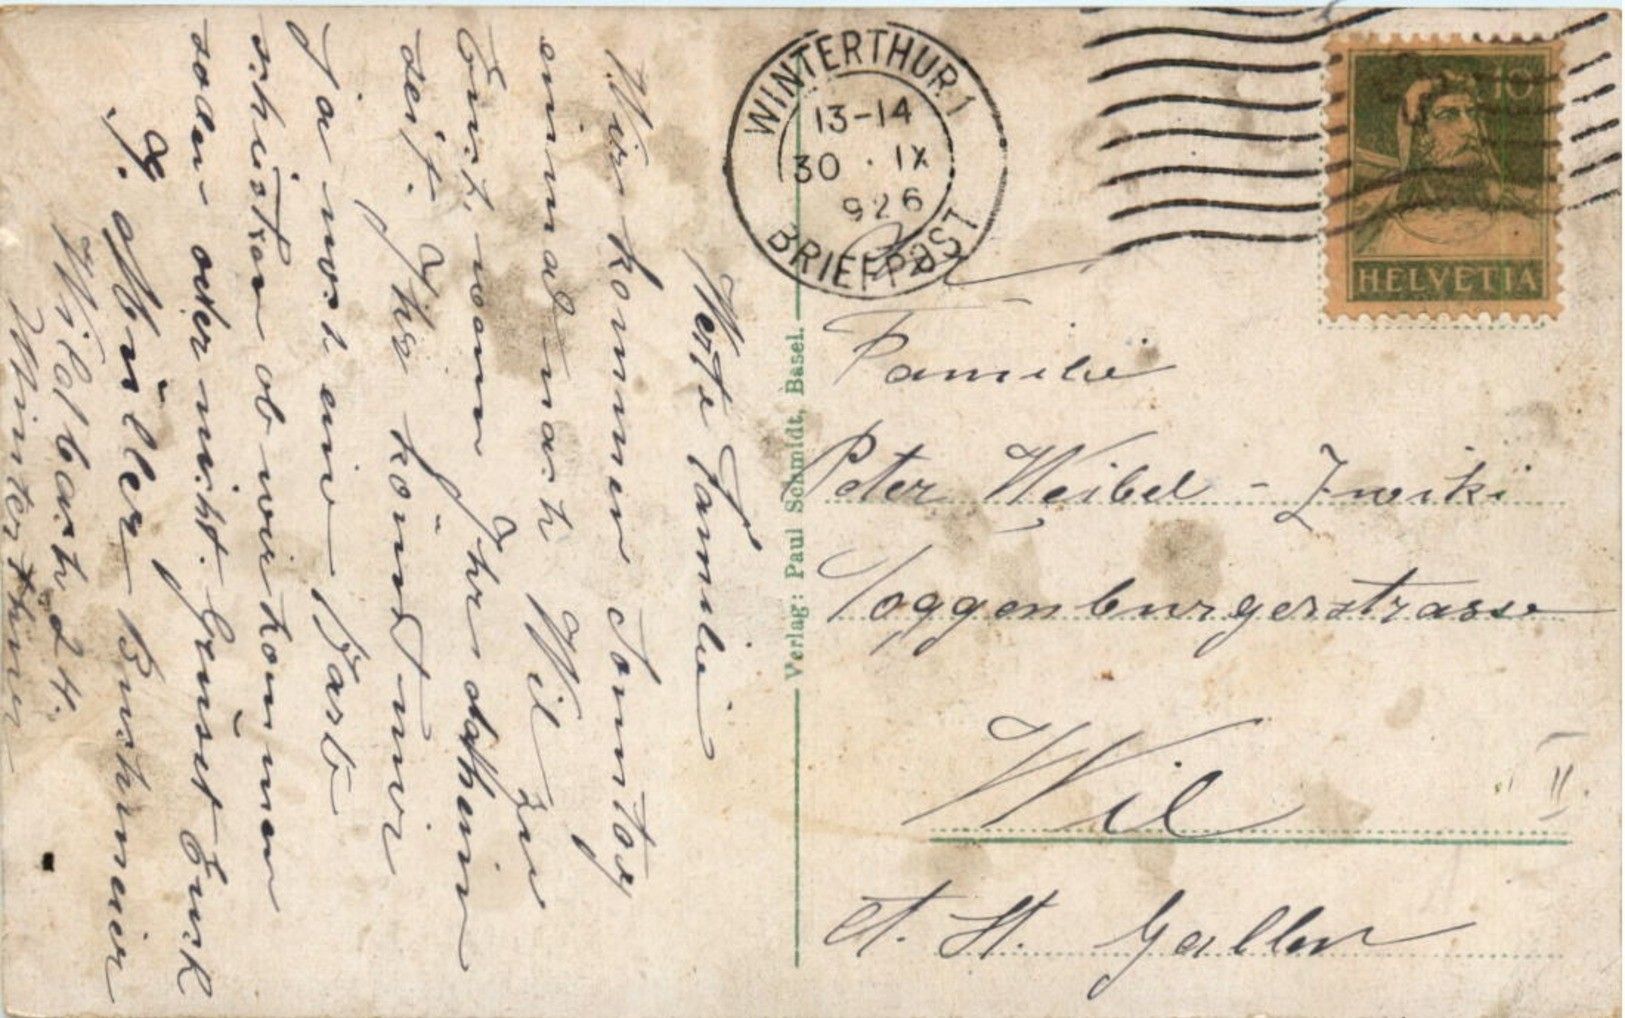 Werte Familie
Wir kommen Sonntag
einmal nach Wil zu
Euch, wann Ihr daheim
seit. Ihr könnt mir
ja noch ein Kart
schicken ob wir kommen
sollen oder nicht. Grüset Euch
J. Müller-Buchmeier
Wildbach 24.
Winterthur
WINTERTHUR 1
13-14
30 · IX
926
BRIEFPOST
10
HELVETIA
Verlag: Paul Schmidt, Basel.
Familie
Peter Weibel - Zwiki
Toggenburgerstrasse
Wil
Ct. St. Gallen
II.